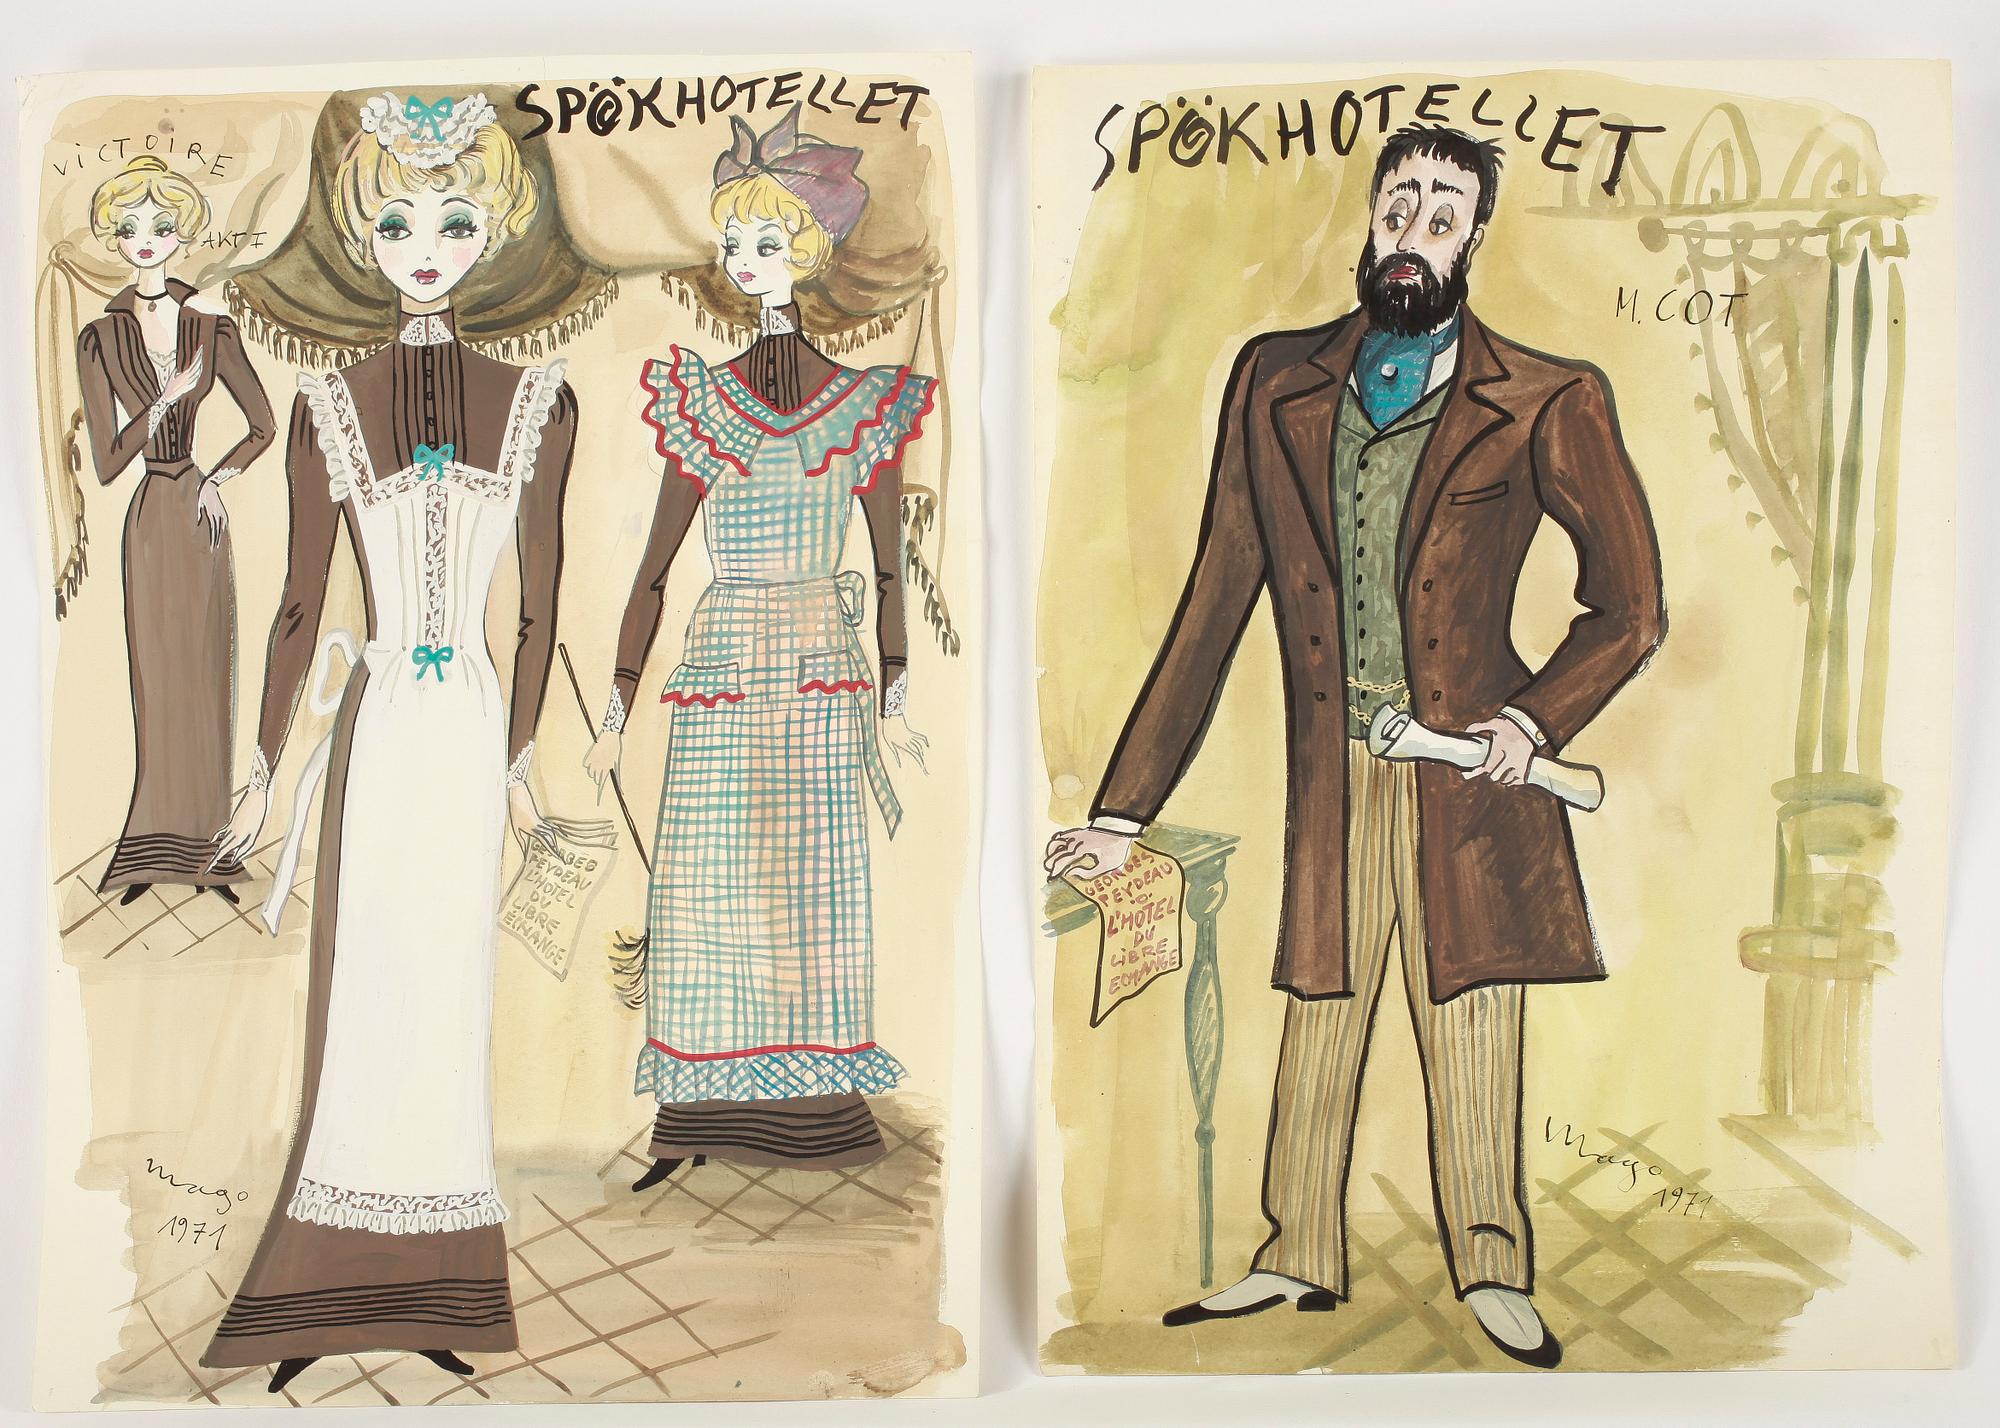 SPÖKHOTELLET
VICTOIRE
AKT I
GEORGES
FEYDEAU
L'HOTEL
DU
LIBRE
ÉCHANGE
Mago
1971
SPÖKHOTELLET
M. COT
GEORGES
FEYDEAU
L'HOTEL
DU
LIBRE
ECHANGE
Mago
1971